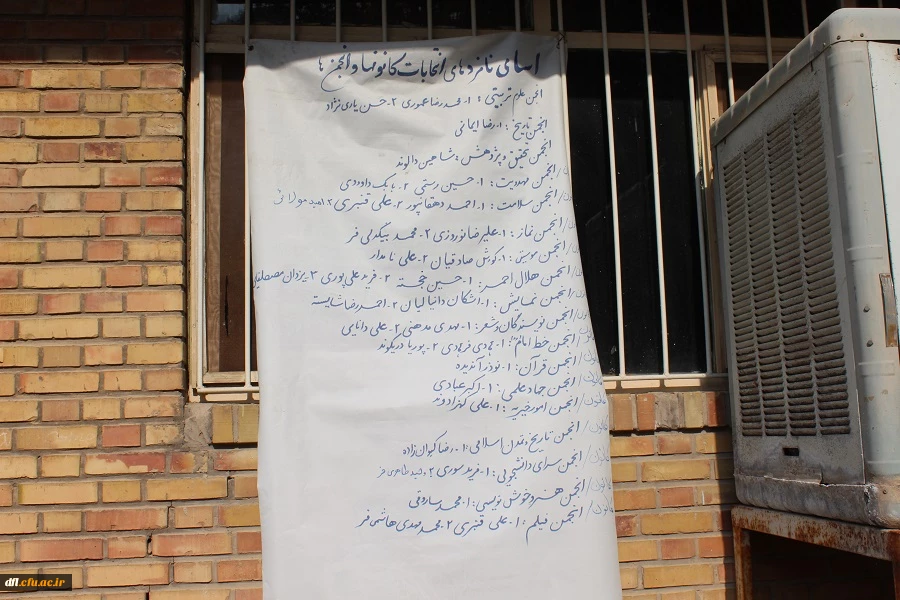 اسامی نامزدهای انتخابات کانونها و انجمن ها
انجمن علوم تربیتی: ۱- محمدرضا عموری ۲- حسن یاری نژاد
انجمن تاریخ: ۱- رضا ایمانی
انجمن تحقیق و پژوهش: شاهین دالوند
انجمن مهدویت: ۱- حسین رستمی ۲- بابک داوودی
انجمن سلامت: ۱- احمد دهقانپور ۲- علی قنبری ۳-
کانون/انجمن نماز: ۱- علیرضا نوروزی ۲- محمد بیگدلی فر
کانون/انجمن موسیقی: ۱- کورش صادقیان ۲- علی نامدار
کانون/انجمن هلال احمر: ۱- حسین خجسته ۲- فرید علی پوری ۳- یزدان
کانون/انجمن نمایش: ۱- اشکان دانیالیان ۲- احمدرضا شایسته
کانون/انجمن نویسندگان و شعر: ۱- مهدی مدهنی ۲- علی دانایی
کانون/انجمن خط امام: ۱- هادی فرهادی ۲- پوریا دریکوند
کانون/انجمن قرآن: ۱- نوذر آندیده
کانون/انجمن جهاد علمی: ۱- اکبر عبادی
کانون/انجمن امور خیریه: ۱- علی
کانون/انجمن تاریخ و تمدن اسلامی: ۱- رضا کیوان زاده
کانون/انجمن سرای دانشجویی: ۱- فرید سوری ۲- وحید طاهری فر
کانون/انجمن هنر و خوش نویسی: ۱- محمد ساروقی
کانون/انجمن فیلم: ۱- علی قنبری ۲- محمدمهدی هاشمی فر
dfl.cfu.ac.ir